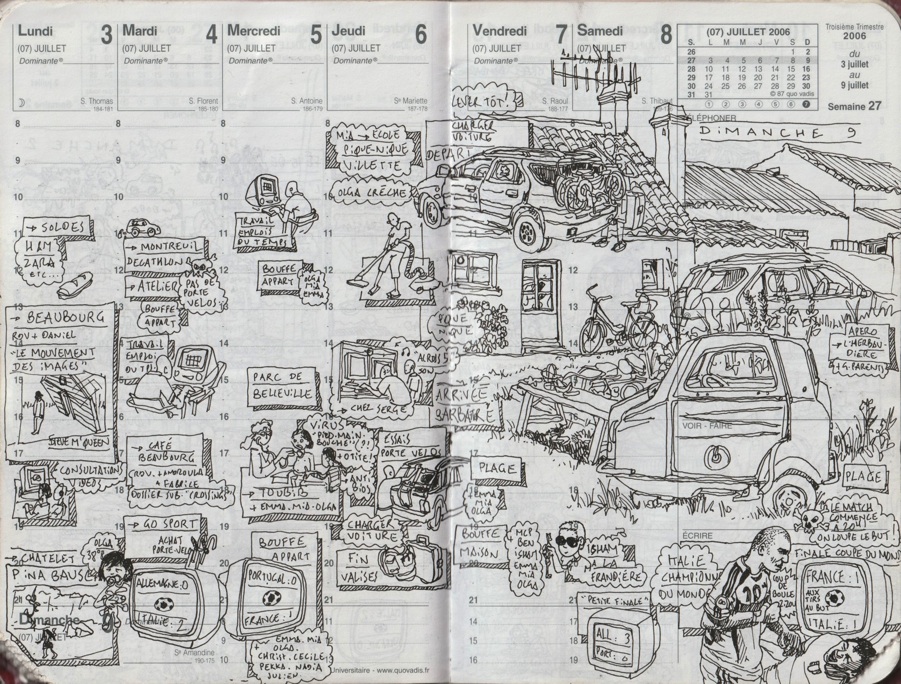 Lundi 3
(07) JUILLET
Dominante®
S. Thomas
184-181
→ SOLDES
H&M
ZARA
etc...
→ BEAUBOURG
ROV + DANIEL
"LE MOUVEMENT
DES IMAGES"
STEVE M'QUEEN
CONSULTATION
→ CHATELET
PINA BAUSCH
Dimanche
(07) JUILLET
Mardi 4
(07) JUILLET
Dominante®
S. Florent
185-180
→ MONTREUIL
DECATHLON
→ ATELIER
PAS DE
PORTE
VELOS
BOUFFE
APPART
TRAVAIL
EMPLOI
DU
→ CAFÉ
BEAUBOURG
+ FABRICE
DOSSIER SUB. "CROSSING"
→ GO SPORT
ACHAT
PORTE-VELO
OLGA
38°
ALLEMAGNE: 0
ITALIE: 2
Se Amandine
190-175
Mercredi 5
(07) JUILLET
Dominante®
S. Antoine
186-179
TRAVAIL
EMPLOIS
DU TEMPS
BOUFFE
APPART
MIA
EMMA
PARC DE
BELLEVILLE
VIRUS
PIED-MAIN-
BOUCHE
+ OTITE!
ANTI
BIOS
→ TOUBIB
+ EMMA. MIA. OLGA
BOUFFE
APPART
PORTUGAL: 0
FRANCE: 1
+ EMMA. MIA
OLGA.
CHRIST. CECILE.
PERKA. NADIA
JULIEN
Jeudi 6
(07) JUILLET
Dominante®
Se Mariette
187-178
MIA → ECOLE
PIQUE-NIQUE
VILLETTE
OLGA CRÊCHE
→ CHEZ SERGE
ESSAIS
PORTE VELO
CHARGER
VOITURE
FIN
VALISES
Universitaire - www.quovadis.fr
Vendredi 7
(07) JUILLET
Dominante®
S. Raoul
188-177
LEVER TÔT!
CHARGER
VOITURE
DEPART
PIQUE
NIQUE
ARRIVÉE
BARBATRE
PLAGE
EMMA
MIA
OLGA
BOUFFE
MAISON
MCP
BEN
ISHAM
EMMA
MIA
OLGA
Samedi 8
(07) JUILLET
Dominante®
S. Thibaut
ISHAM
À LA
FRANDIÈRE
"PETITE FINALE"
ALL: 3
PORT: 0
(07) JUILLET 2006
S. L M M J V S D
26 1 2
27 3 4 5 6 7 8 9
28 10 11 12 13 14 15 16
29 17 18 19 20 21 22 23
30 24 25 26 27 28 29 30
31 31 © 87 quo vadis
1 2 3 4 5 6 7
Troisième Trimestre
2006
du
3 juillet
au
9 juillet
Semaine 27
TÉLÉPHONER
DIMANCHE 9
APERO
→ L'HERBAU-
DIERE
VOIR - FAIRE
PLAGE
LE MATCH
COMMENCE
À 20H
ON LOUPE LE BUT!
ÉCRIRE
FINALE COUPE DU MONDE
ITALIE
CHAMPIONNE
DU MONDE
COUP
DE
BOULE
FRANCE: 1
AUX
TIRS
AU BUT
ITALIE: 1